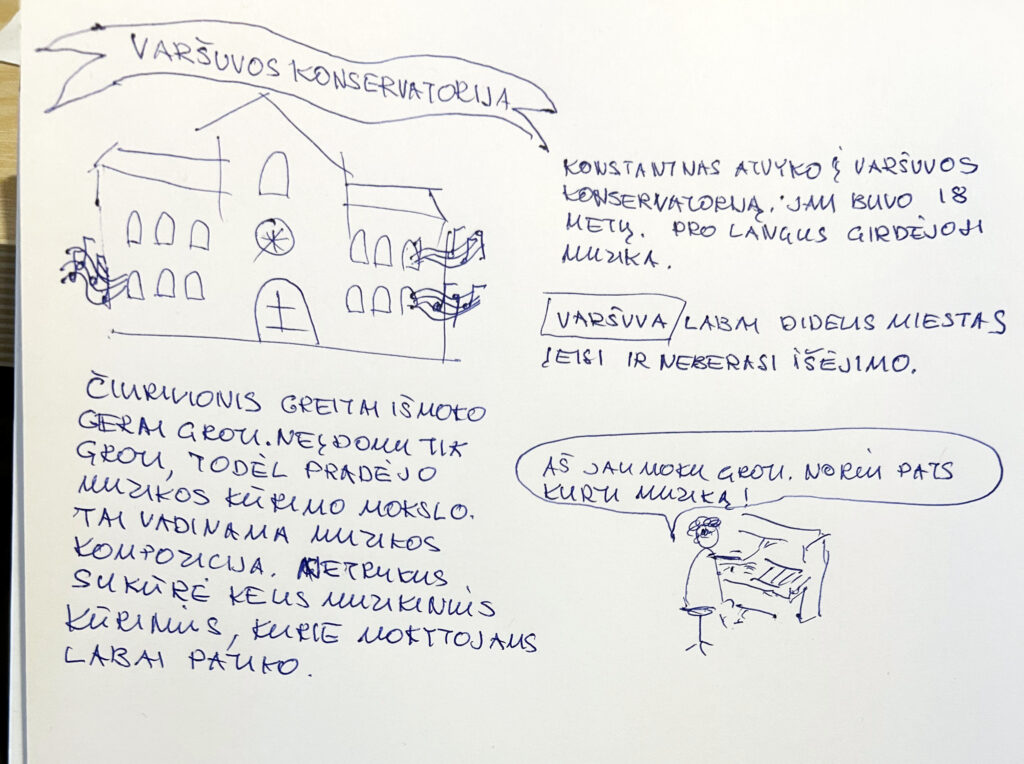 VARŠUVOS KONSERVATORIJA
KONSTANTINAS ATVYKO Į VARŠUVOS
KONSERVATORIJĄ. JAM BUVO 18
METŲ. PRO LANGUS GIRDĖJOSI
MUZIKA.
VARŠUVA LABAI DIDELIS MIESTAS
ĮEISI IR NEBERASI IŠĖJIMO.
ČIURLIONIS GREITAI IŠMOKO
GERAI GROTI. NEĮDOMU TIK
GROTI, TODĖL PRADĖJO
MUZIKOS KŪRIMO MOKSLO.
TAI VADINAMA MUZIKOS
KOMPOZICIJA. NETRUKUS
SUKŪRĖ KELIS MUZIKINIUS
KŪRINIUS, KURIE MOKYTOJAMS
LABAI PATIKO.
AŠ JAU MOKU GROTI. NORIU PATS
KURTI MUZIKĄ!